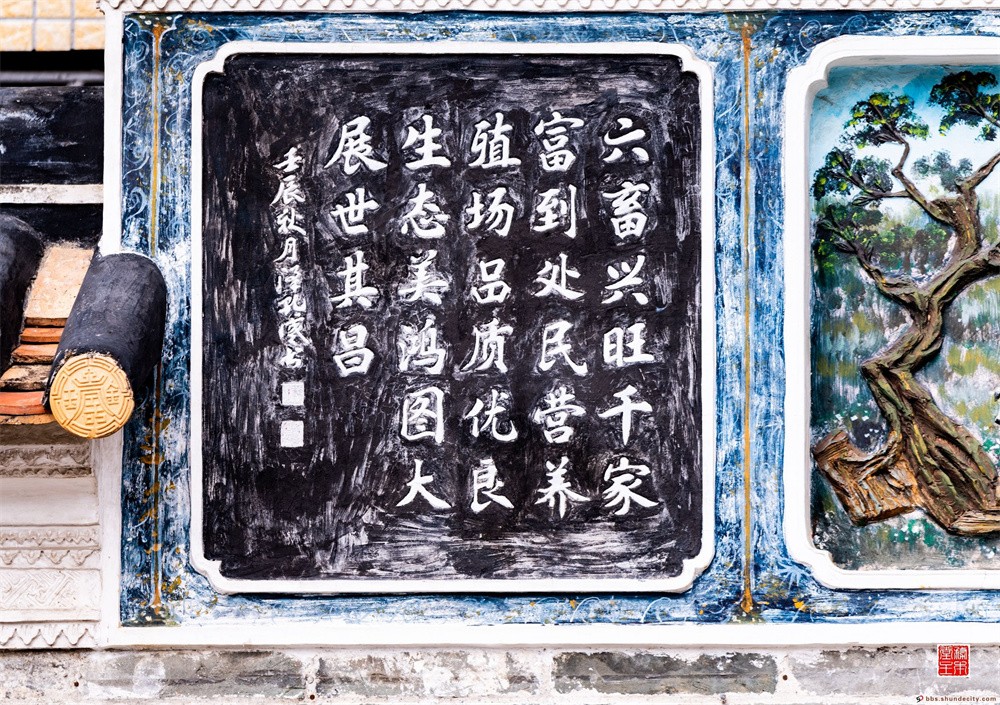 六畜兴旺千家
富到处民营养
殖场品质优良
生态美鸿图大
展世其昌
壬辰秋月
bbs.shundecity.com